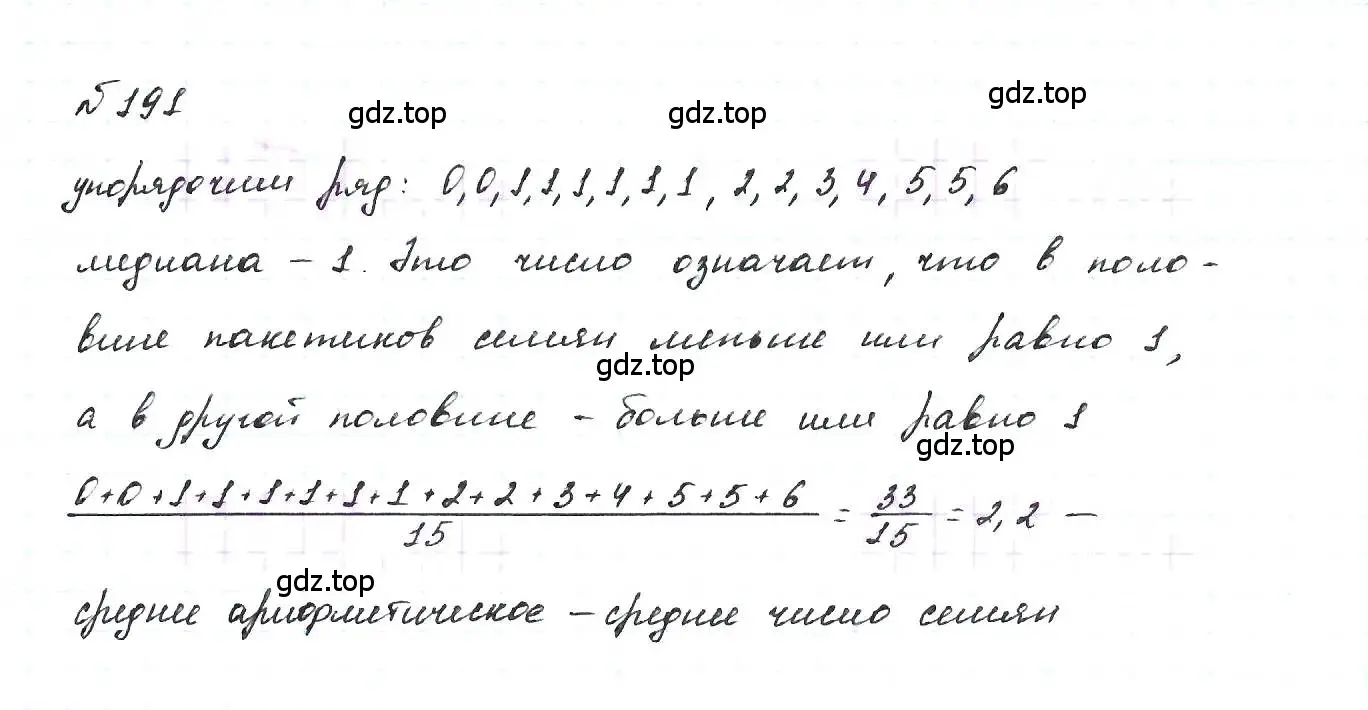 № 191
gdz.top gdz.top gdz.top
упорядочим ряд: 0, 0, 1, 1, 1, 1, 1, 1, 2, 2, 3, 4, 5, 5, 6
медиана – 1. Это число означает, что в поло-
вине пакетиков семян меньше или равно 1,
gdz.top
а в другой половине – больше или равно 1
gdz.top
0+0+1+1+1+1+1+1+2+2+3+4+5+5+6 / 15 = 33/15 = 2,2 –
gdz.top
среднее арифметическое – среднее число семян